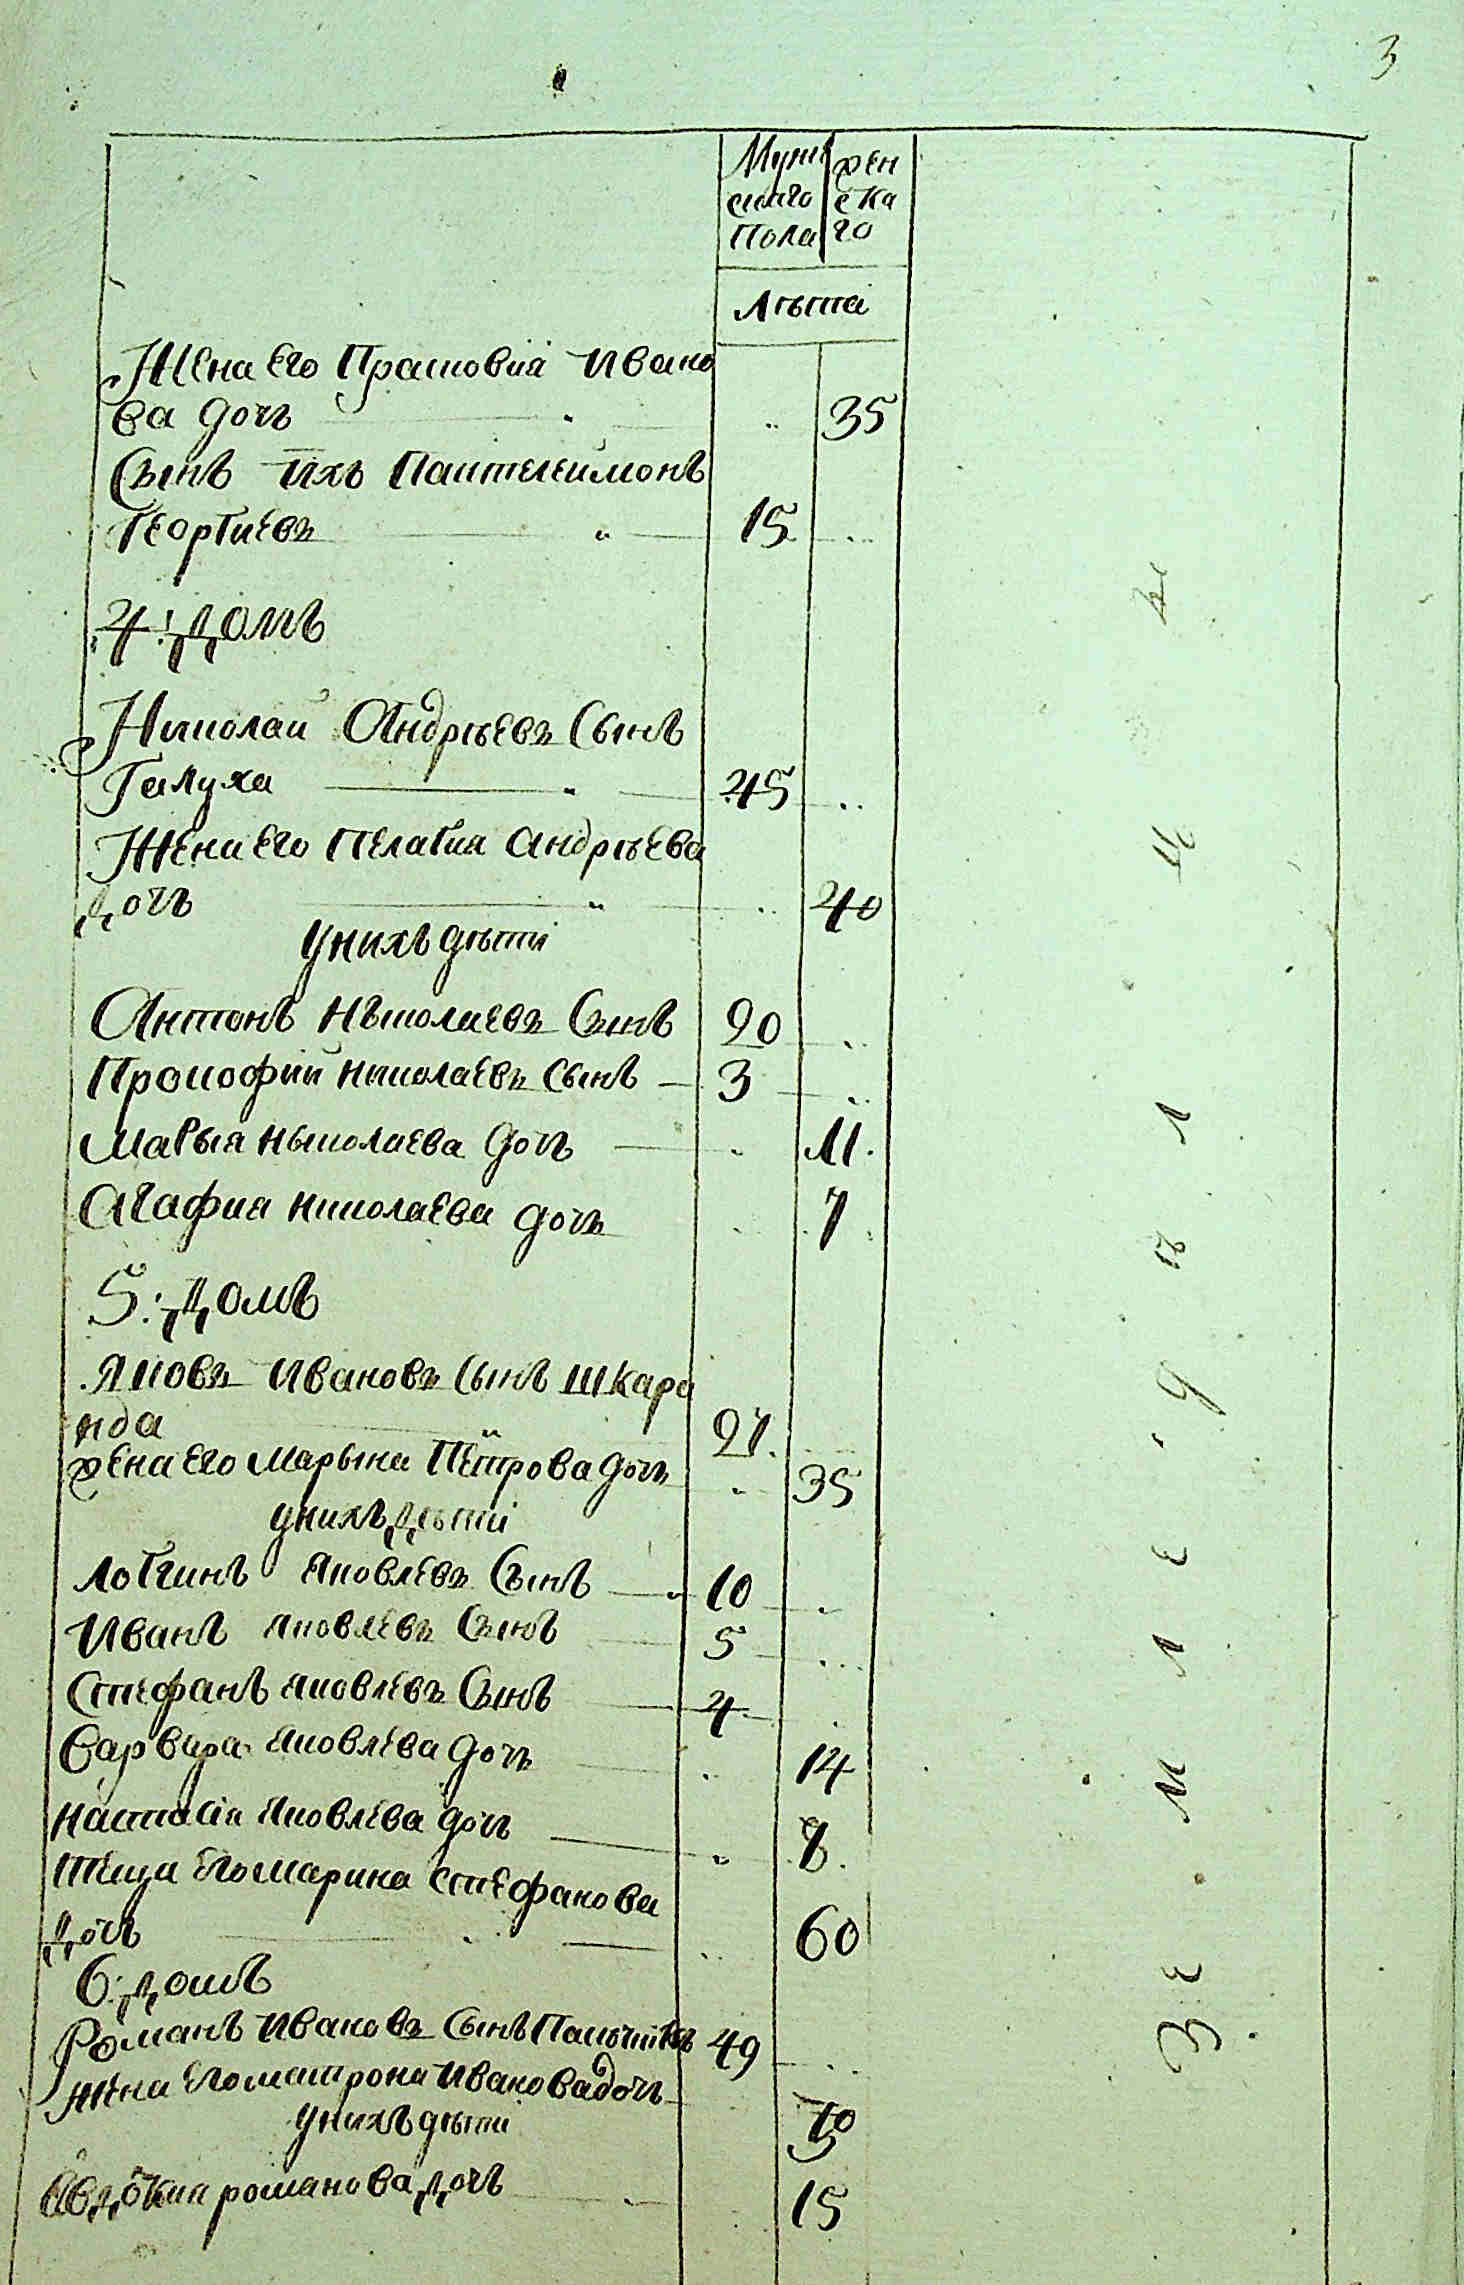 3
Мужескаго Пола
женскаго
Лѣта
Жена Его Прасковия Ивано
ва дочъ 35
Сынъ Ихъ Пантелеимонъ
Георгиевъ 15
4: Домъ
Николаи Андрѣевъ Сынъ
Галуха 45
Жена Его Пелагия Андрѣева
дочъ 40
У нихъ дѣти
Антонъ Ныколаевъ Сынъ 20
Прокофий Николаевъ Сынъ 3
Марыя Ныколаева дочъ 11
Агафия Николаева дочъ 7
5: Домъ
Яковъ Ивановъ Сынъ Шкара
нда 27
жена Его Марына Петрова дочъ 35
У нихъ дѣти
Логгинъ Яковлевъ Сынъ 10
Иванъ Яковлевъ Сынъ 5
Стефанъ Яковлевъ Сынъ 4
Варвара Яковлева дочъ 14
Настасия Яковлева дочъ 8
Теща Его Марина Стефанова
дочъ 60
6: домъ
Романъ Ивановъ Сынъ 49
Жена Его Матрона Ивановадочъ
У нихъ дѣти
Авдокия романова дочъ 15
Земледѣлцы